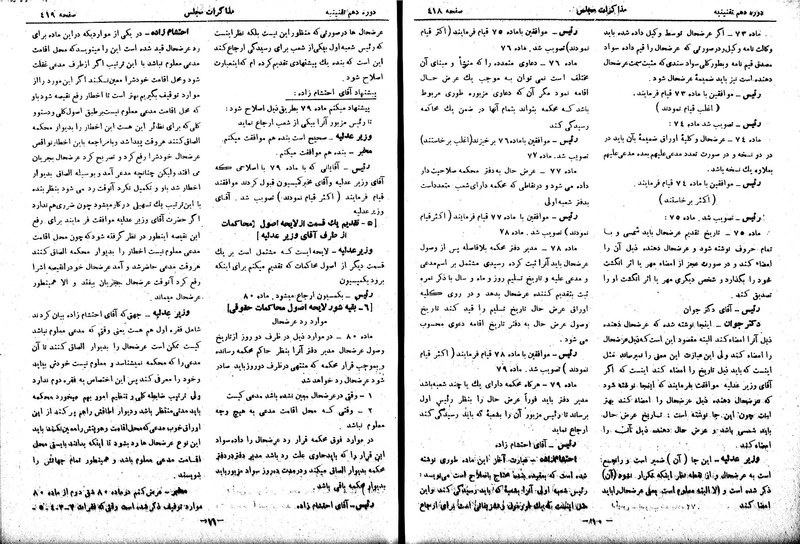 دوره دهم تقنینیه مذاکرات مجلس صفحه ٤١٨
ماده ٧٣ - اگر عرضحال توسط وکیل داده شده باید
وکالت نامه وکیل و در صورتی که عرضحال را قیم داده سواد
مصدق قیم نامه و بطور کلی سواد سندی که مثبت سمت عرضحال
دهنده است نیز باید ضمیمه عرضحال شود.
رئیس - موافقین با ماده ٧٣ قیام فرمایند.
( اغلب قیام نمودند )
تصویب شد. ماده ٧٤ :
ماده ٧٤ - عرضحال و کلیه اوراق ضمیمه بآن باید در
در دو نسخه و در صورت تعدد مدعی علیهم بعده مدعی علیهم
بعلاوه یک نسخه باشد.
رئیس - موافقین با ماده ٧٤ قیام فرمایند.
( اکثر برخاستند )
رئیس - تصویب شد. ماده ٧٥ :
ماده ٧٥ - تاریخ تقدیم عرضحال باید شمسی و با
تمام حروف نوشته شود و عرضحال دهنده ذیل آن را
امضاء کند و در صورت عجز از امضاء مهر یا اثر انگشت
خود را بگذارد و شخص دیگری مهر یا اثر انگشت او را
تصدیق کند.
رئیس - آقای دکتر جوان
دکتر جوان - اینجا نوشته شده که عرضحال دهنده
ذیل آنرا امضاء کند البته مقصود این است که ذیل عرضحال
را امضاء کند ولی این عبارت این معنی را نمیرساند مثل
اینست که باید ذیل تاریخ را امضاء کند اینست که اگر
آقای وزیر عدلیه موافقت بفرمایند که اینجا نوشته شود
که عرضحال دهنده ذیل عرضحال را امضاء کند بهتر
است چون این جا نوشته است : تاریخ عرض حال
باید شمسی باشد و عرض حال دهنده ذیل آن را
امضاء کند.
وزیر عدلیه - این جا ( آن ) ضمیر است و راجع
است به عرضحال و از نقطه نظر اینکه تکرار نشود (آن)
ذکر شده است و (الا البته معلوم است یعنی عرضحال را باید
رئیس - موافقین با ماده ٧٥ قیام فرمایند ( اکثر قیام
نمودند) تصویب شد. ماده ٧٦
ماده ٧٦ - دعاوی متعدده را که منشأ و مبنای آن
مختلف است نمی توان به موجب یک عرض حال
اقامه نمود مگر آن که دعاوی مزبوره طوری مربوط
باشد که محکمه بتواند بتمام آنها در ضمن یک محاکمه
رسیدگی کند
رئیس - موافقین با ماده ٧٦ برخیزند (اغلب برخاستند)
تصویب شد. ماده ٧٧
ماده ٧٧ - عرض حال به دفتر محکمه صلاحیت دار
داده می شود و در نقاطی که محکمه دارای شعب متعدد است
بدفتر شعبه اولی
رئیس - موافقین با ماده ٧٧ قیام فرمایند ( اکثر قیام
نمودند ) تصویب شد. ماده ٧٨
ماده ٧٨ - مدیر دفتر محکمه بلافاصله پس از وصول
عرضحال باید آنرا ثبت کرده رسیدی مشتمل بر اسم مدعی
و مدعی علیه و تاریخ تسلیم روز و ماه و سال با ذکر نمره
ثبت بتقدیم کننده عرضحال بدهد و در روی کلیه
اوراق عرض حال تاریخ تسلیم را قید کند تاریخ
وصول عرض حال به دفتر تاریخ اقامه دعوی محسوب
می شود.
رئیس - موافقین با ماده ٧٨ قیام فرمایند ( اکثر قیام
نمودند ) تصویب شد. ماده ٧٩
ماده ٧٩ - هرگاه محکمه دارای یک یا چند شعبه باشد
مدیر دفتر باید فوراً عرض حال را بنظر رئیس اول
برساند تا رئیس مزبور آن را بشعبه که باید رسیدگی کند
ارجاع نماید
رئیس - آقای احتشام زاده
احتشام زاده - عبارت آخر این ماده طوری نوشته
شده است که بعقیده بنده محتاج باصلاح است مینویسد :
دوره دهم تقنینیه مذاکرات مجلس صفحه ٤١٩
عرضحال ها در صورتی که منظور این نیست بلکه نظر اینست
که رئیس شعبه اول بیکی از شعب برای رسیدگی ارجاع کند
این است که بنده یک پیشنهادی تقدیم کرده ام که اینعبارت
اصلاح شود.
پیشنهاد آقای احتشام زاده :
پیشنهاد میکنم ماده ٧٩ بطریق ذیل اصلاح شود :
تا رئیس مزبور آنرا بیکی از شعب ارجاع نماید
وزیر عدلیه - صحیح است بنده هم موافقت میکنم.
مخبر - بنده هم موافقت میکنم.
رئیس - آقایانی که با ماده ٧٩ با اصلاحی که
آقای وزیر عدلیه و آقای مخبر کمیسیون قبول کردند موافقند
قیام فرمایند ( اکثر قیام نمودند ) تصویب شد. آقای
وزیر عدلیه
[٥ - تقدیم یک قسمت از لایحه اصول محاکمات
از طرف آقای وزیر عدلیه]
وزیر عدلیه - لایحه ایست که مشتمل است بر یک
قسمت دیگر از اصول محاکمات که تقدیم میکنم برای اینکه
برود بکمیسیون
رئیس - بکمیسیون ارجاع میشود. ماده ٨٠
[٦ - بقیه شور لایحه اصول محاکمات حقوقی]
موارد رد عرضحال
ماده ٨٠ - در موارد ذیل در ظرف دو روز از تاریخ
وصول عرضحال مدیر دفتر آنرا بنظر حاکم محکمه رسانده
و بموجب قرار محکمه که منتهی در ظرف دو روز باید صادر
شود عرضحال رد خواهد شد
١ - وقتی در عرضحال معین نشده باشد مدعی کیست
٢ - وقتی که محل اقامت مدعی به هیچ وجه
معلوم نباشد
در موارد فوق محکمه قرار رد عرضحال را داده سواد
این قرار را که باید حاوی علت رد باشد مدیر دفتر در
محکمه بدیوار الصاق میکند و در مدت ده روز سواد مزبور باید
بدیوار محکمه باقی باشد
رئیس - آقای احتشام زاده
احتشام زاده - در یکی از مواردیکه در این ماده برای
رد عرضحال قید شده است این را مینویسد که محل اقامت
مدعی معلوم نباشد با این ترتیب اگر از طرف مدعی غفلت
شود و محل اقامت خودش را معین نکند اگر این مورد را از
موارد توقیف بگیریم بهتر است تا اخطار رفع نقیصه شود باو
که محل اقامت مدعی معلوم نیست بر طبق اصول کلی و دستور
کلی که برای نظائر این هست این اخطار را بدیوار محکمه
الصاق کنند هروقت پیدا شد و بامراجعه باین اخطار نواقص
عرضحال خودش را رفع کرد و تصریح کرد عرضحال بجریان
می افتد ولیکن چنانچه مدعی آمد و بوسیله الصاق بدیوار
اخطار شد باو و تکمیل نکرد آنوقت رد می شود بنظر بنده
با این ترتیب یک تسهیلی در کار میشود چون ضرری هم ندارد
اگر حضرت آقای وزیر عدلیه موافقت فرمایند برای رفع
این نقیصه اینطور در نظر گرفته شود که چون محل اقامت
مدعی معلوم نیست اخطار را بدیوار محکمه الصاق کنند
هروقت مدعی حاضر شد و آمد عرضحال خود را نقیصه اش را
رفع کرد آنوقت عرضحال بجریان بیفتد و الا همینطور
عرضحال میماند
وزیر عدلیه - جهتی که آقای احتشام زاده بیان کردند
شامل فقره اول هم هست یعنی وقتی که مدعی معلوم نباشد
کیست ممکن است عرضحال را بدیوار الصاق کنند تا آن
مدعی را که محکمه نمیشناسد و معلوم نیست خودش بیاید
وخود را معرفی کند پس این اختصاص به فقره دوم ندارد
ولی ترتیب ضابطه کلی و تنظیم امور بهم میخورد محکمه
باید مدتی منتظر باشد و دیوار اطاقش را هم پر کنند از این
اوراق خوب مدعی که محل اقامت و هویتش را معین نکند باید
این نوع عرضحال ها رد بشود تا اینکه بدانند بایستی محل
اقامت مدعی معلوم باشد و همینطور تمام جهاتش را
بنویسند.
مخبر - عرض کنم در ماده ٨٠ شق دوم از ماده ٨٠
موارد توقیف ذکر شده است وقتی که فقرات ٢-٣-٤-٥